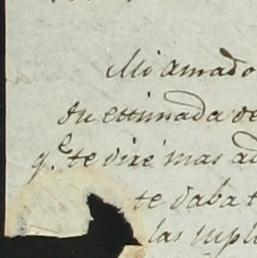 Mi amado
su estimada de
q.e te diré mas ad
te daba t
las supl